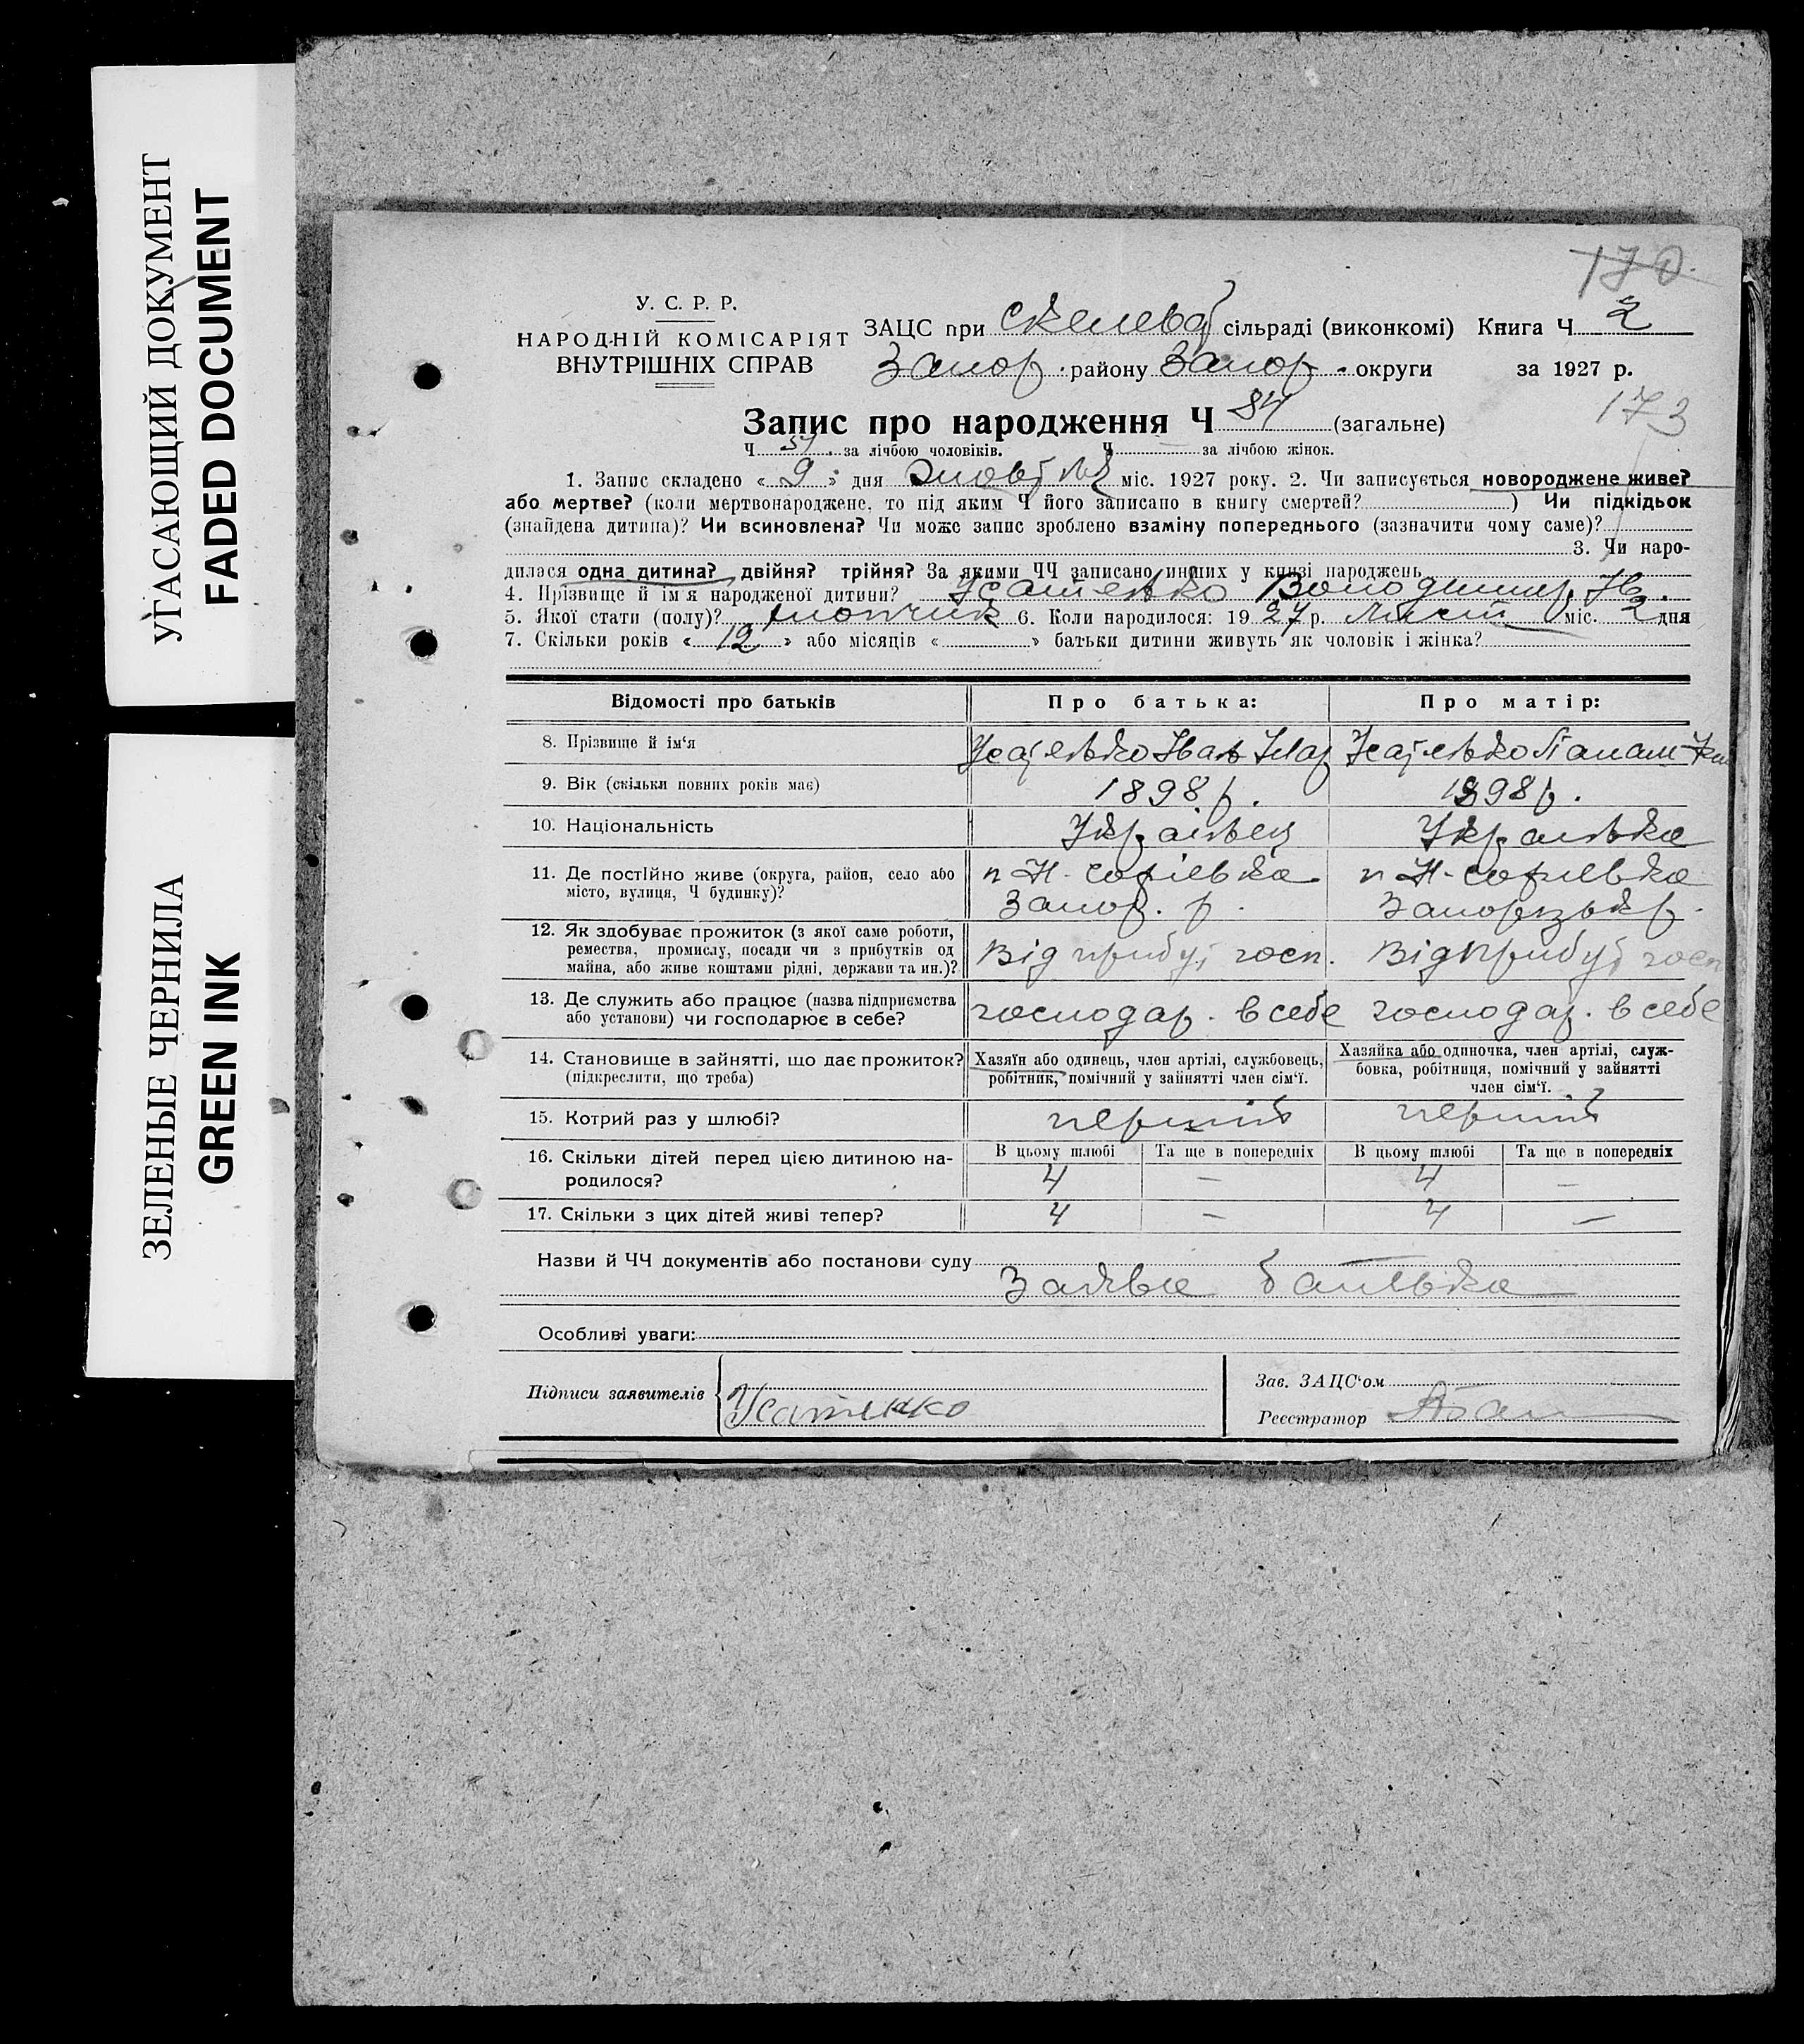 УГАСАЮЩИЙ ДОКУМЕНТ
FADED DOCUMENT
ЗЕЛЕНЫЕ ЧЕРНИЛА
GREEN INK
170.
У. С. Р. Р.
НАРОДНІЙ КОМІСАРІЯТ
ВНУТРІШНІХ СПРАВ
ЗАЦС при сільраді (виконкомі) Книга Ч 2
Запор. району Запор. округи за 1927 р.
173
Запис про народження Ч 84 (загальне)
Ч за лічбою чоловіків. Ч — за лічбою жінок.
1. Запис складено « 9 » дня міс. 1927 року. 2. Чи записується новороджене живе?
або мертве? (коли мертвонароджене, то під яким Ч його записано в книгу смертей? ) Чи підкідьок
(знайдена дитина)? Чи всиновлена? Чи може запис зроблено взаміну попереднього (зазначити чому саме)?
3. Чи наро-
дилася одна дитина? двійня? трійня? За якими ЧЧ записано инших у книзі народжень
4. Прізвище й ім'я народженої дитини? Усатенко Володимир Ів.
5. Якої стати (полу)? хлопчик 6. Коли народилося: 1927 р. Лист міс. 2 дня
7. Скільки років « 12 » або місяців « » батьки дитини живуть як чоловік і жінка?
Відомості про батьків Про батька: Про матір:
8. Прізвище й ім'я Усатенко Іван Усатенко
9. Вік (скільки повних років має) 1898 р. 1898 р.
10. Національність Українець Українка
11. Де постійно живе (округа, район, село або
місто, вулиця, Ч будинку)?
п Н-Софіевка
Запор. р.
п Н-Софиевка
12. Як здобуває прожиток (з якої саме роботи,
ремества, промислу, посади чи з прибутків од
майна, або живе коштами рідні, держави та ин.)?
Від прибут госп. Від прибут госп
13. Де служить або працює (назва підприємства
або установи) чи господарює в себе?
господар. в себе господар. в себе
14. Становище в зайнятті, що дає прожиток?
(підкреслити, що треба)
Хазяїн або одинець, член артілі, службовець,
робітник, помічний у зайнятті член сім'ї.
Хазяйка або одиночка, член артілі, служ-
бовка, робітниця, помічний у зайнятті
член сім'ї.
15. Котрий раз у шлюбі? перший перший
16. Скільки дітей перед цією дитиною на-
родилося?
В цьому шлюбі Та ще в попередніх В цьому шлюбі Та ще в попередніх
4 — 4 —
17. Скільки з цих дітей живі тепер? 4 — 4 —
Назви й ЧЧ документів або постанови суду
Заява батька
Особливі уваги:
Підписи заявителів
Усатенко
Зав. ЗАЦС'ом
Реєстратор